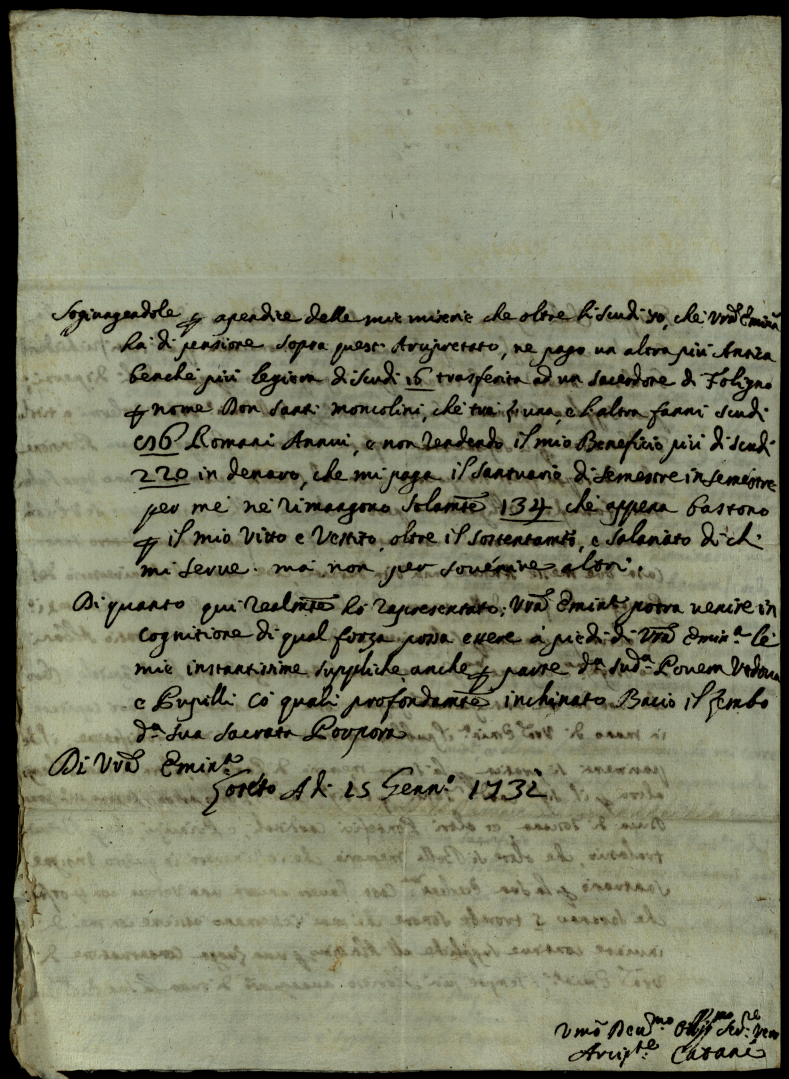 Sogiungendole p apendice delle mie miserie che oltre li scudi 70, che Vrã Eminza
ha di pensione sopra quest Arcipretato, ne pago un altra più Antica
benche più legiera di scudi 16 trasferita ad un Sacerdote di Foligno
p nome Don Santi Moncolini, che tra l'una, e l'altra fanni scudi
Romani Annui, e non rendendo il mio Beneficio più di scudi
220 in denaro, che mi paga il Santuario di semestre in semestre
per me ne rimangono solamte 134 che appena bastono
p il mio Vitto e Vestito, oltre il sostentamto, e salariato di chi
mi serve. ma non per souenire altri.
Di quanto qui realmte hò rapresentato; Vrã Eminza potrà venire in
cognitione di qual forza possa essere a piedi di Vrã Emin.a le
mie instantissime suppliche anche p parte d.a sud.a Povera Vedova
e Pupilli co quali profondamte inchinato Bacio il lembo
d.a sua sacrata Porpora
Di Vrã Emin.a
Loreto A di 15 Genn.o 1732
Vmõ Deu.mo Obb.mo Ser.re
Arcip.te Catani